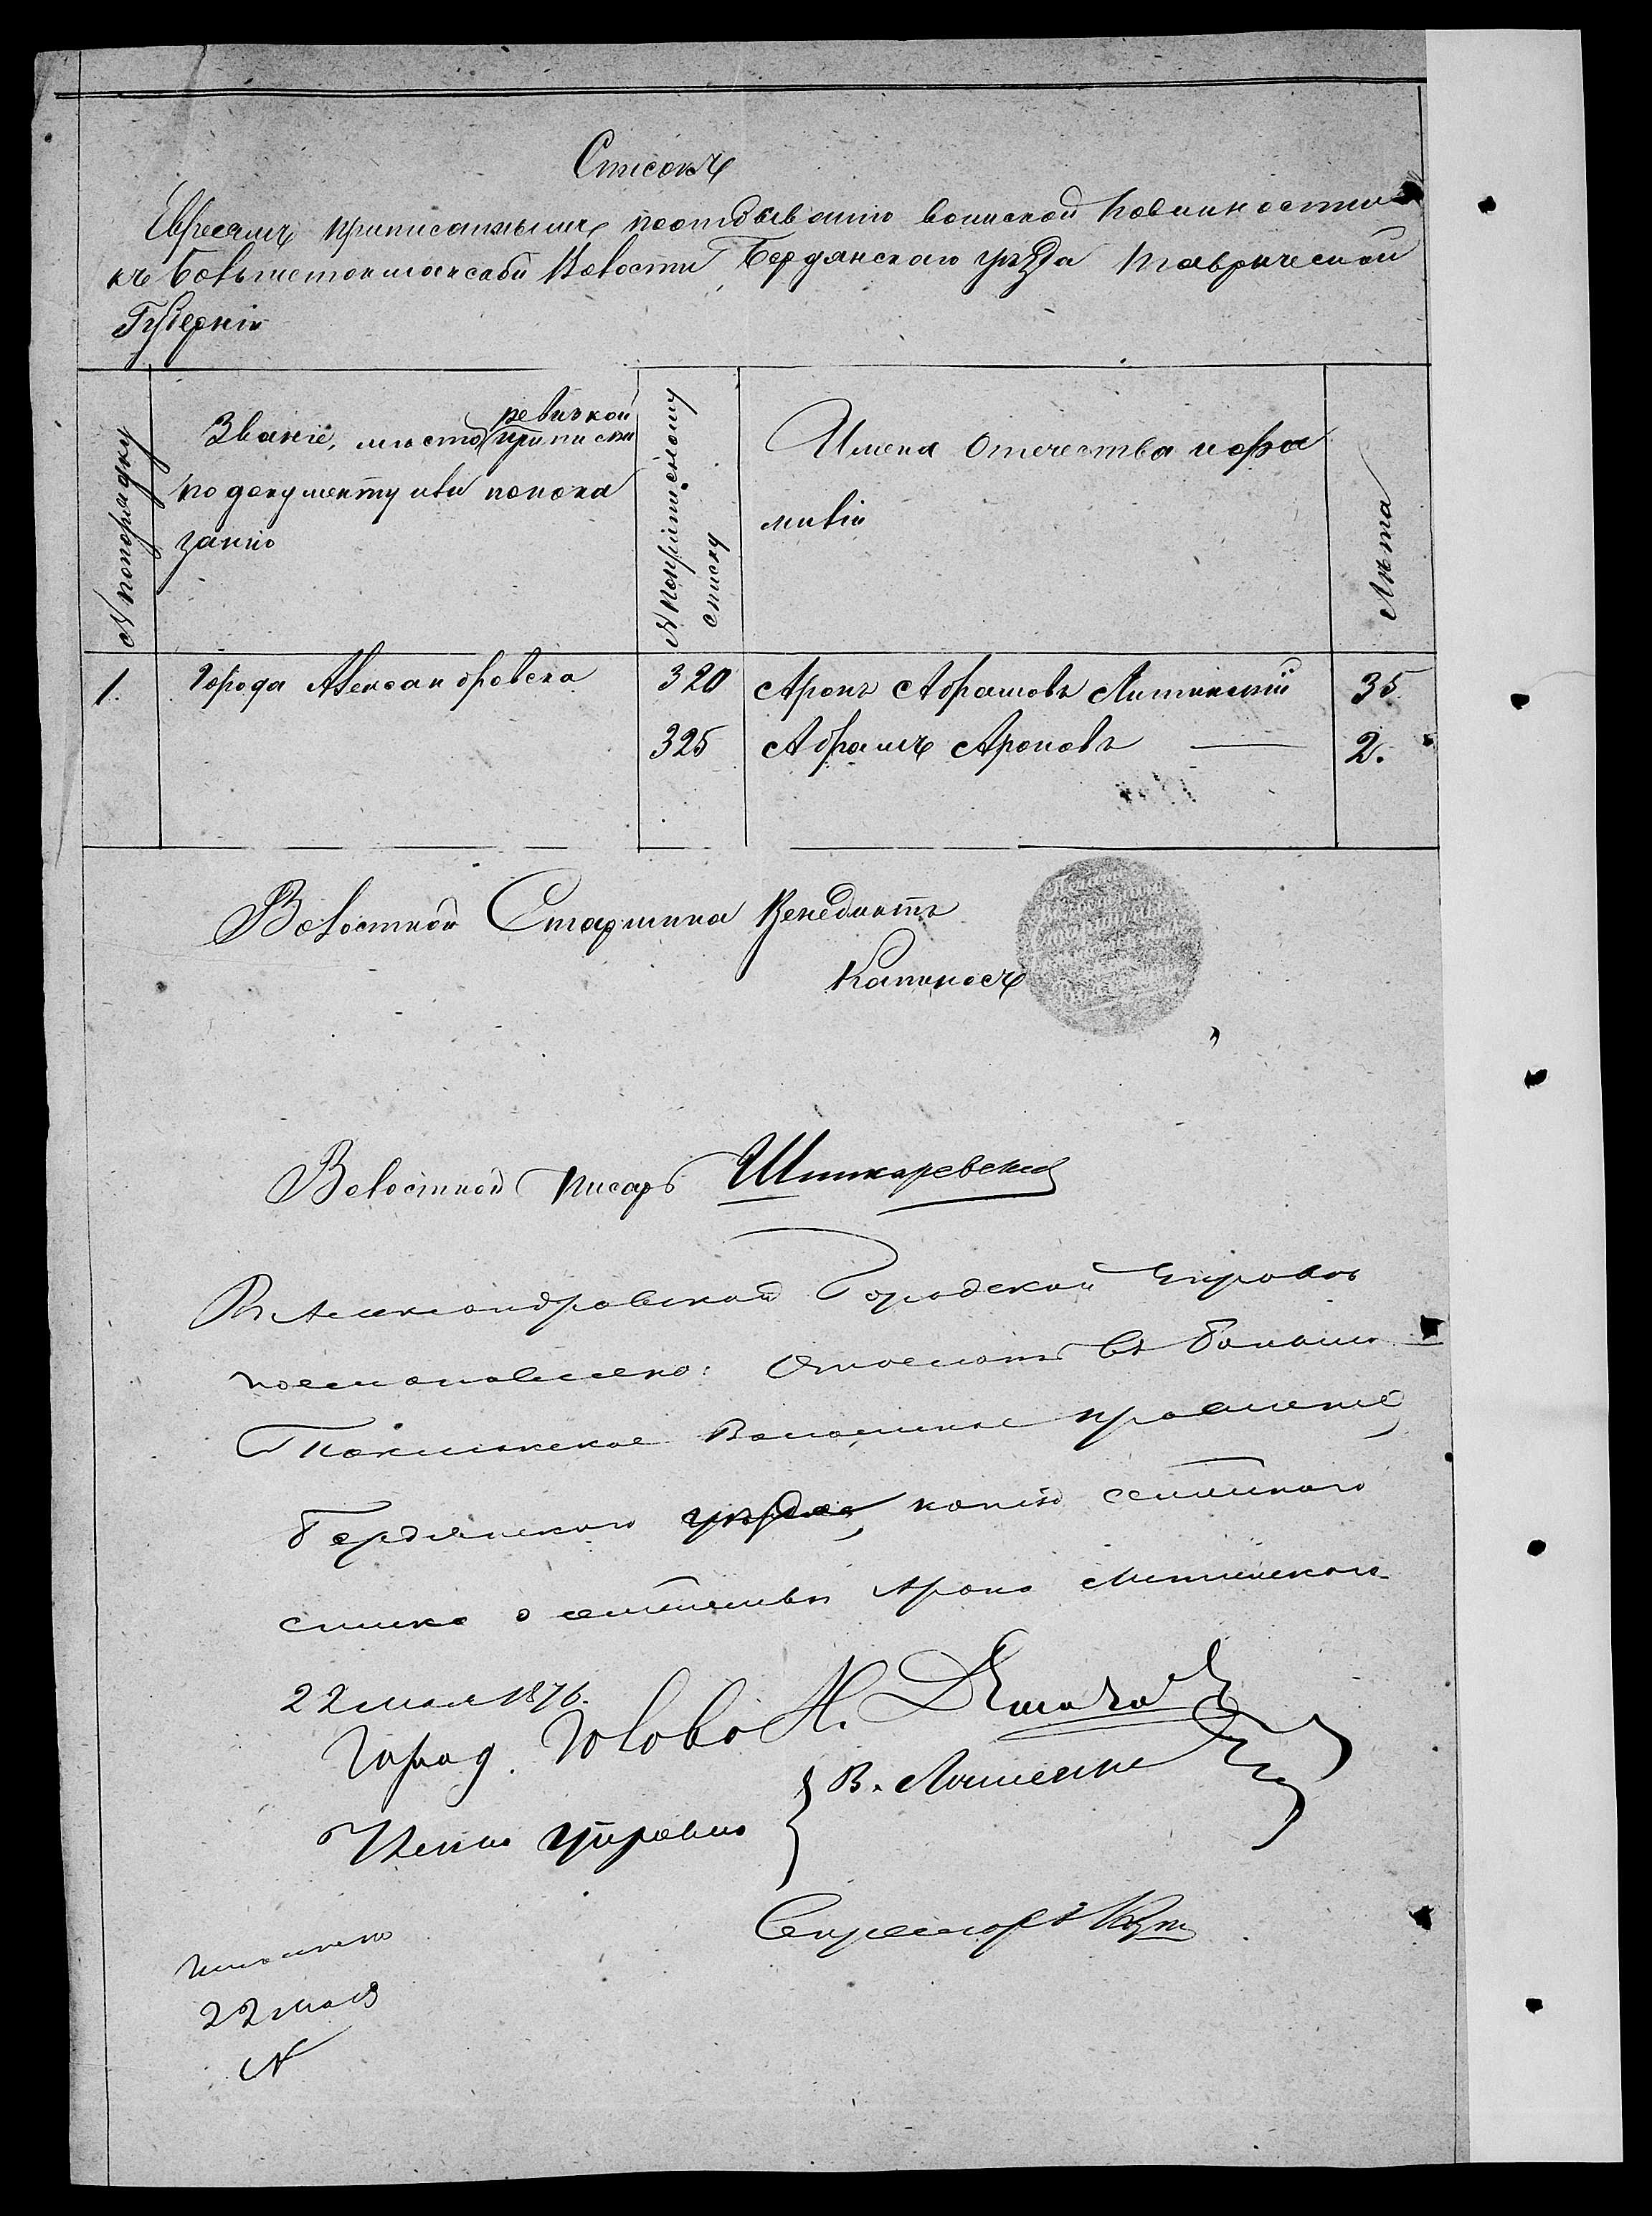 Списокъ
Евреямъ приписаннымъ поотбыванію воинской повинности
къ Большетокмакской Волости, Бердянскаго уѣзда Таврической
Губерніи
№ попорядку
Званіе, мѣсто ревизкой приписки
по документу или попока
занію
№ поприписному
списку
Имена Отечества и фа
миліи
Лѣта
1. Города Александровска 320 Аронъ Абрамовъ Литинскій 35
325 Абрамъ Ароновъ — 2.
Волостной Старшина Венедиктъ
Волостной писарь Шишкаревскій
Въ Александровской Городской Управѣ
постановлено: Отослать въ Больше
Токмакское Волостное правленіе
Бердянскаго уѣзда, копію семейнаго
списка о семействѣ Арона Литинскаго
22 мая 1876.
Город. Голова Н.
Члены Управы { В.
Секретарь
Исполнено
22 мая
№